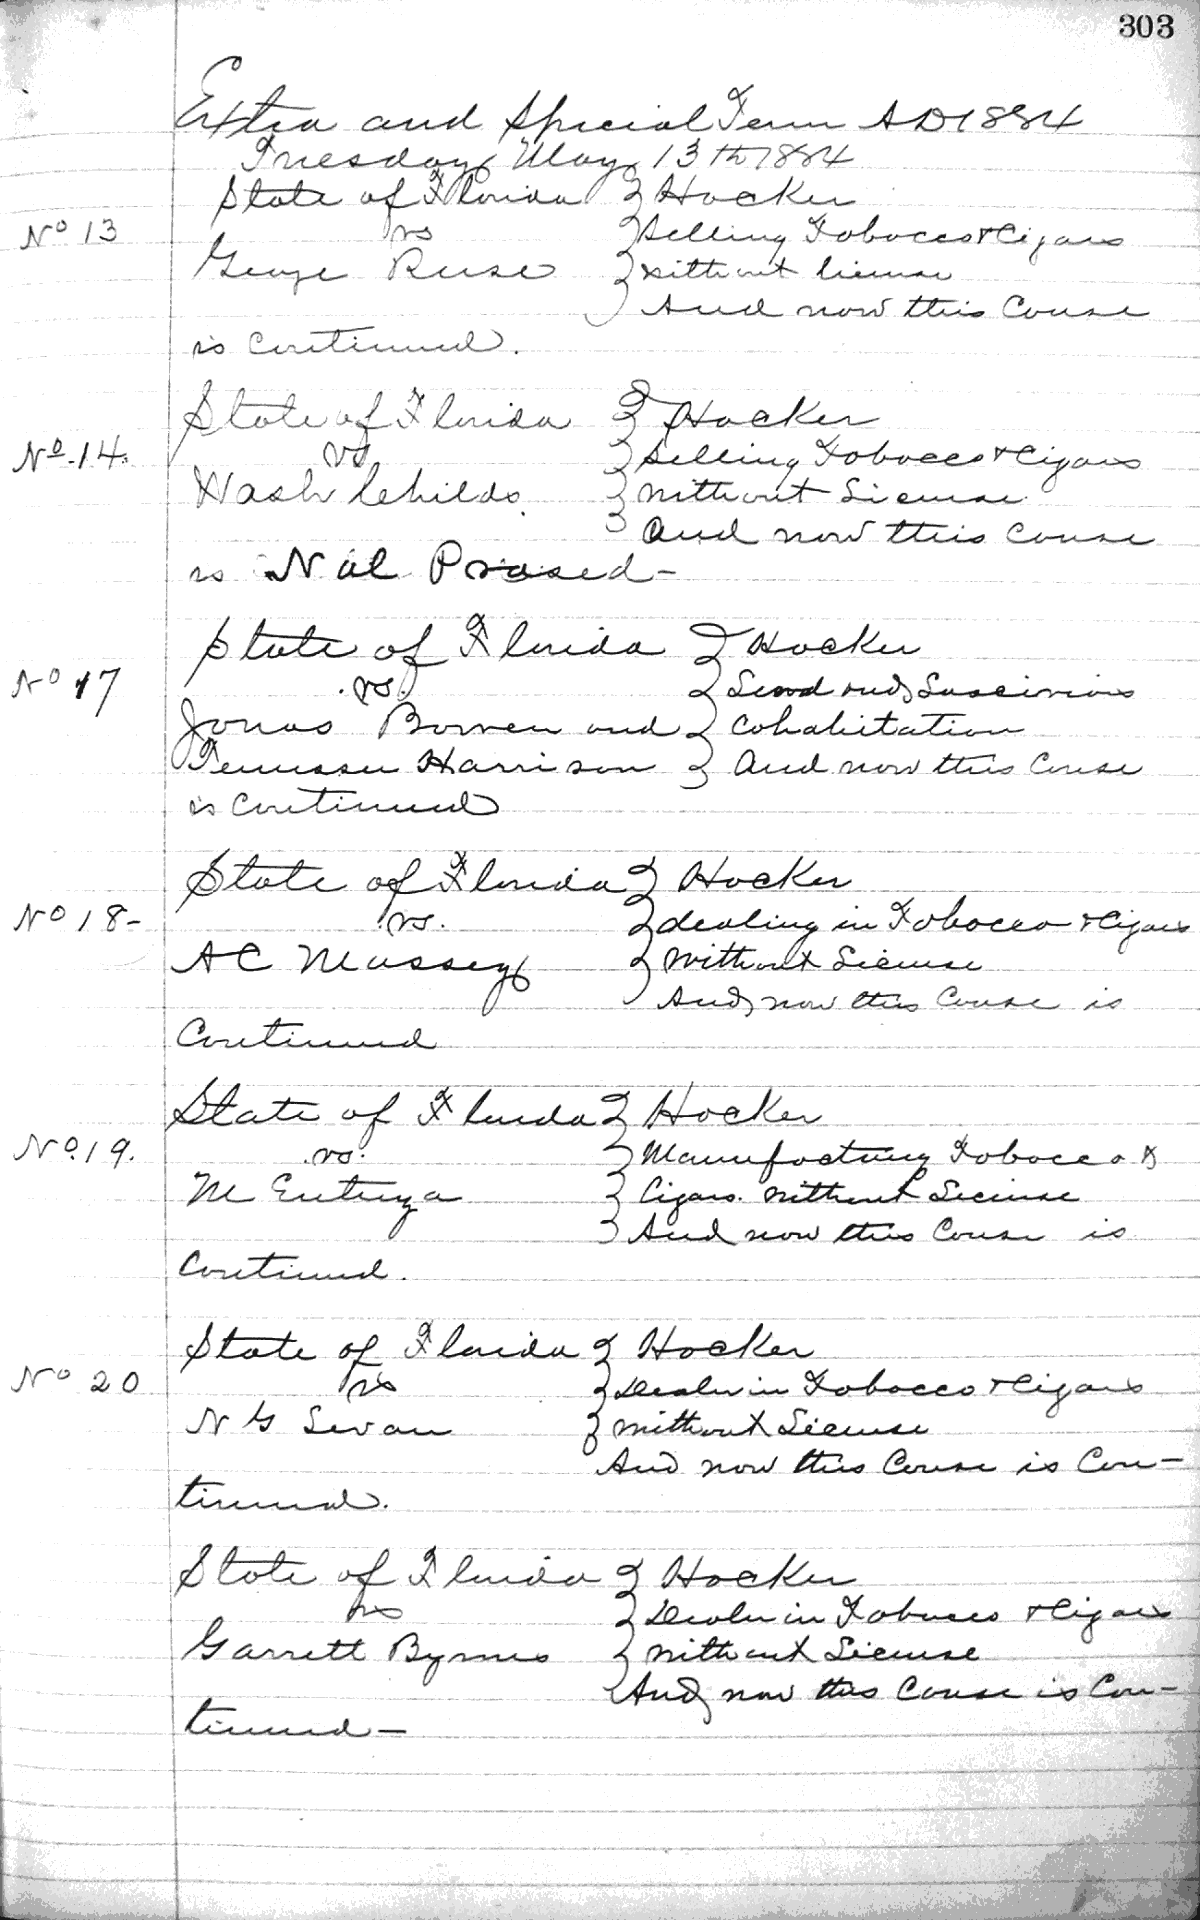 303
Extra and Special Term AD 1884
Tuesday May 13th 1884
State of Florida } Hocker
No 13 vs } Selling Tobacco & Cigars
George Ruse } without license
And now this Cause
is Continued.
State of Florida } Hocker
No. 14. vs } Selling Tobacco & Cigars
Wash Childs. } without License
And now this Cause
is Nol Prosed -
State of Florida } Hocker
No 17 .vs. } Lewd and Lascivious
Jonas Bowen and } Cohabitation
Tennessee Harrison } And now this Cause
is Continued
State of Florida } Hocker
No 18- .vs. } dealing in Tobacco & Cigars
A C Massey } without License
And now this Cause is
Continued
State of Florida } Hocker
No. 19. .vs. } Manufacturing Tobacco &
M } Cigars. without License
} And now this Cause is
Continued.
State of Florida } Hocker
No 20 vs } Dealer in Tobacco & Cigars
N G Sevan } without License
And now this Cause is Con-
tinued.
State of Florida } Hocker
vs } Dealer in Tobacco & Cigars
Garrett Byrnes } without License
And now this Cause is Con-
tinued -